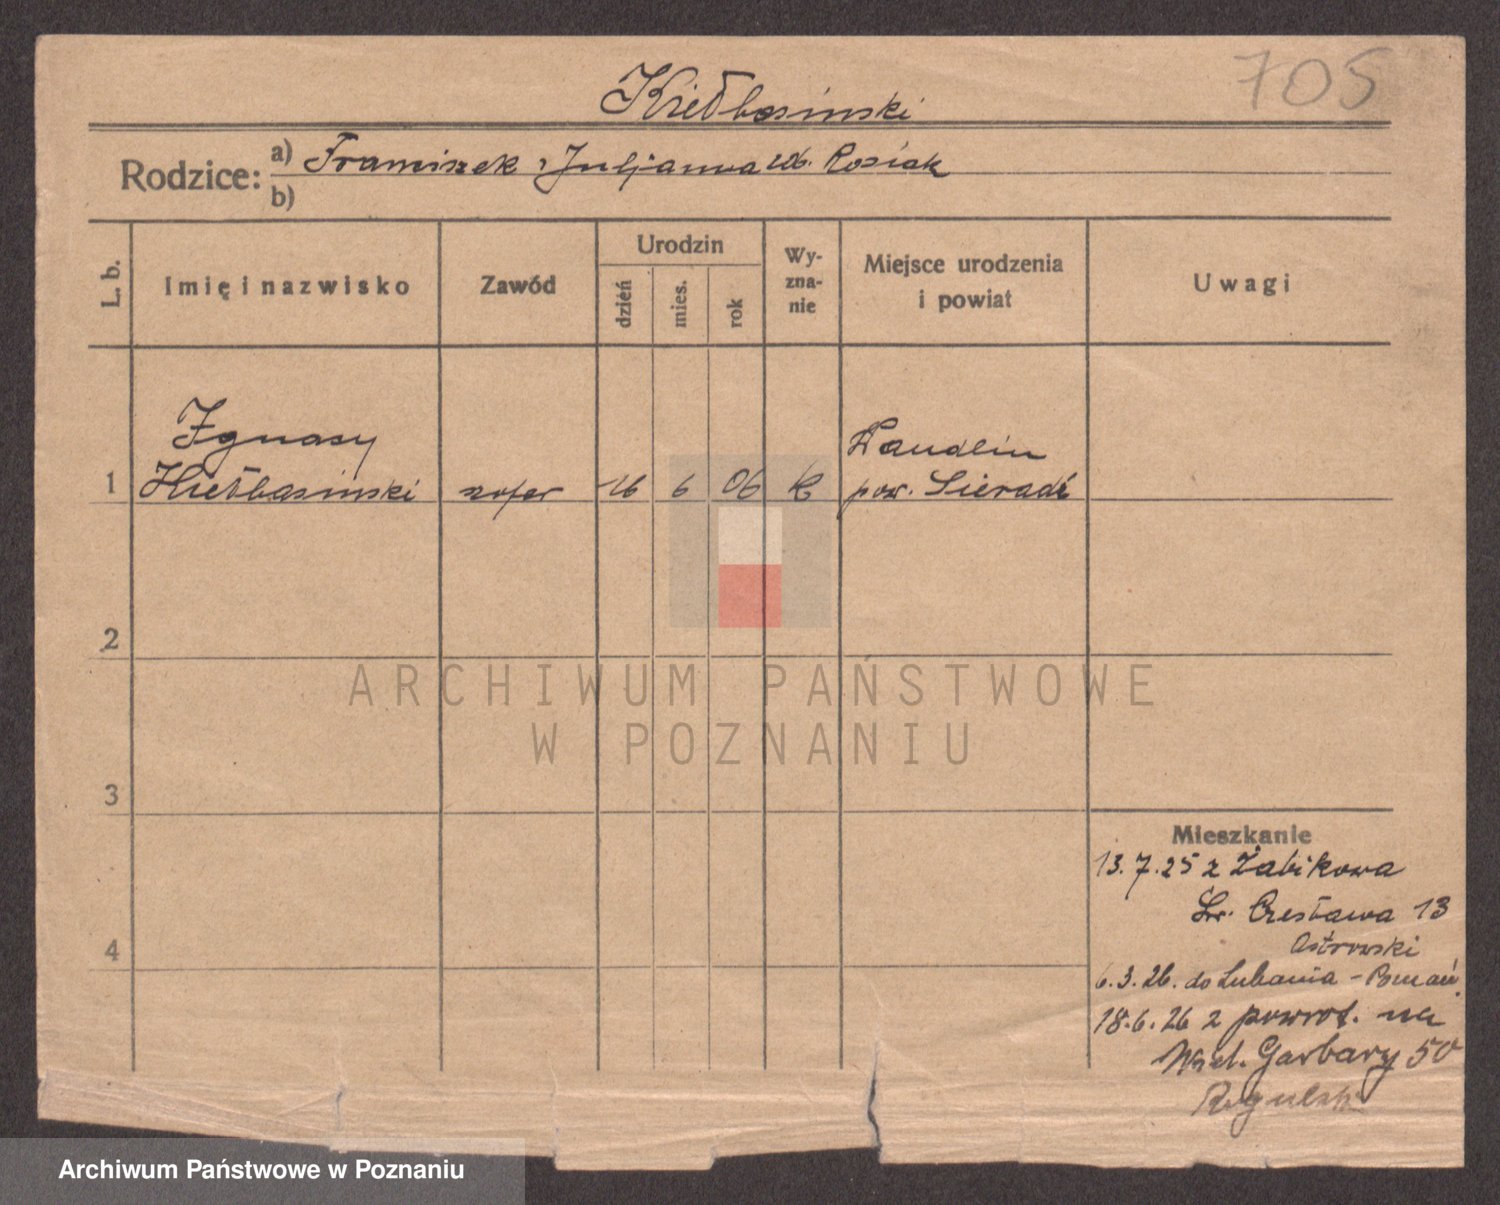 705
Kiełbasinski
Rodzice: a) Franciszek i Juljanna ur. Rosiak
b)
L. b. Imię i nazwisko Zawód Urodzin dzień mies. rok Wy-zna-nie Miejsce urodzenia i powiat Uwagi
Ignacy
1 Kiełbasinski szofer 16 6 06 k
pow. Sieradź
2
3
4
Mieszkanie
13.7.25 z Żabikowa
Św. Czesława 13
Ostrowski
6.3.26. do Lubania - Poznań
18.6.26 z powrot. na
Garbary 50
ARCHIWUM PAŃSTWOWE
W POZNANIU
Archiwum Państwowe w Poznaniu